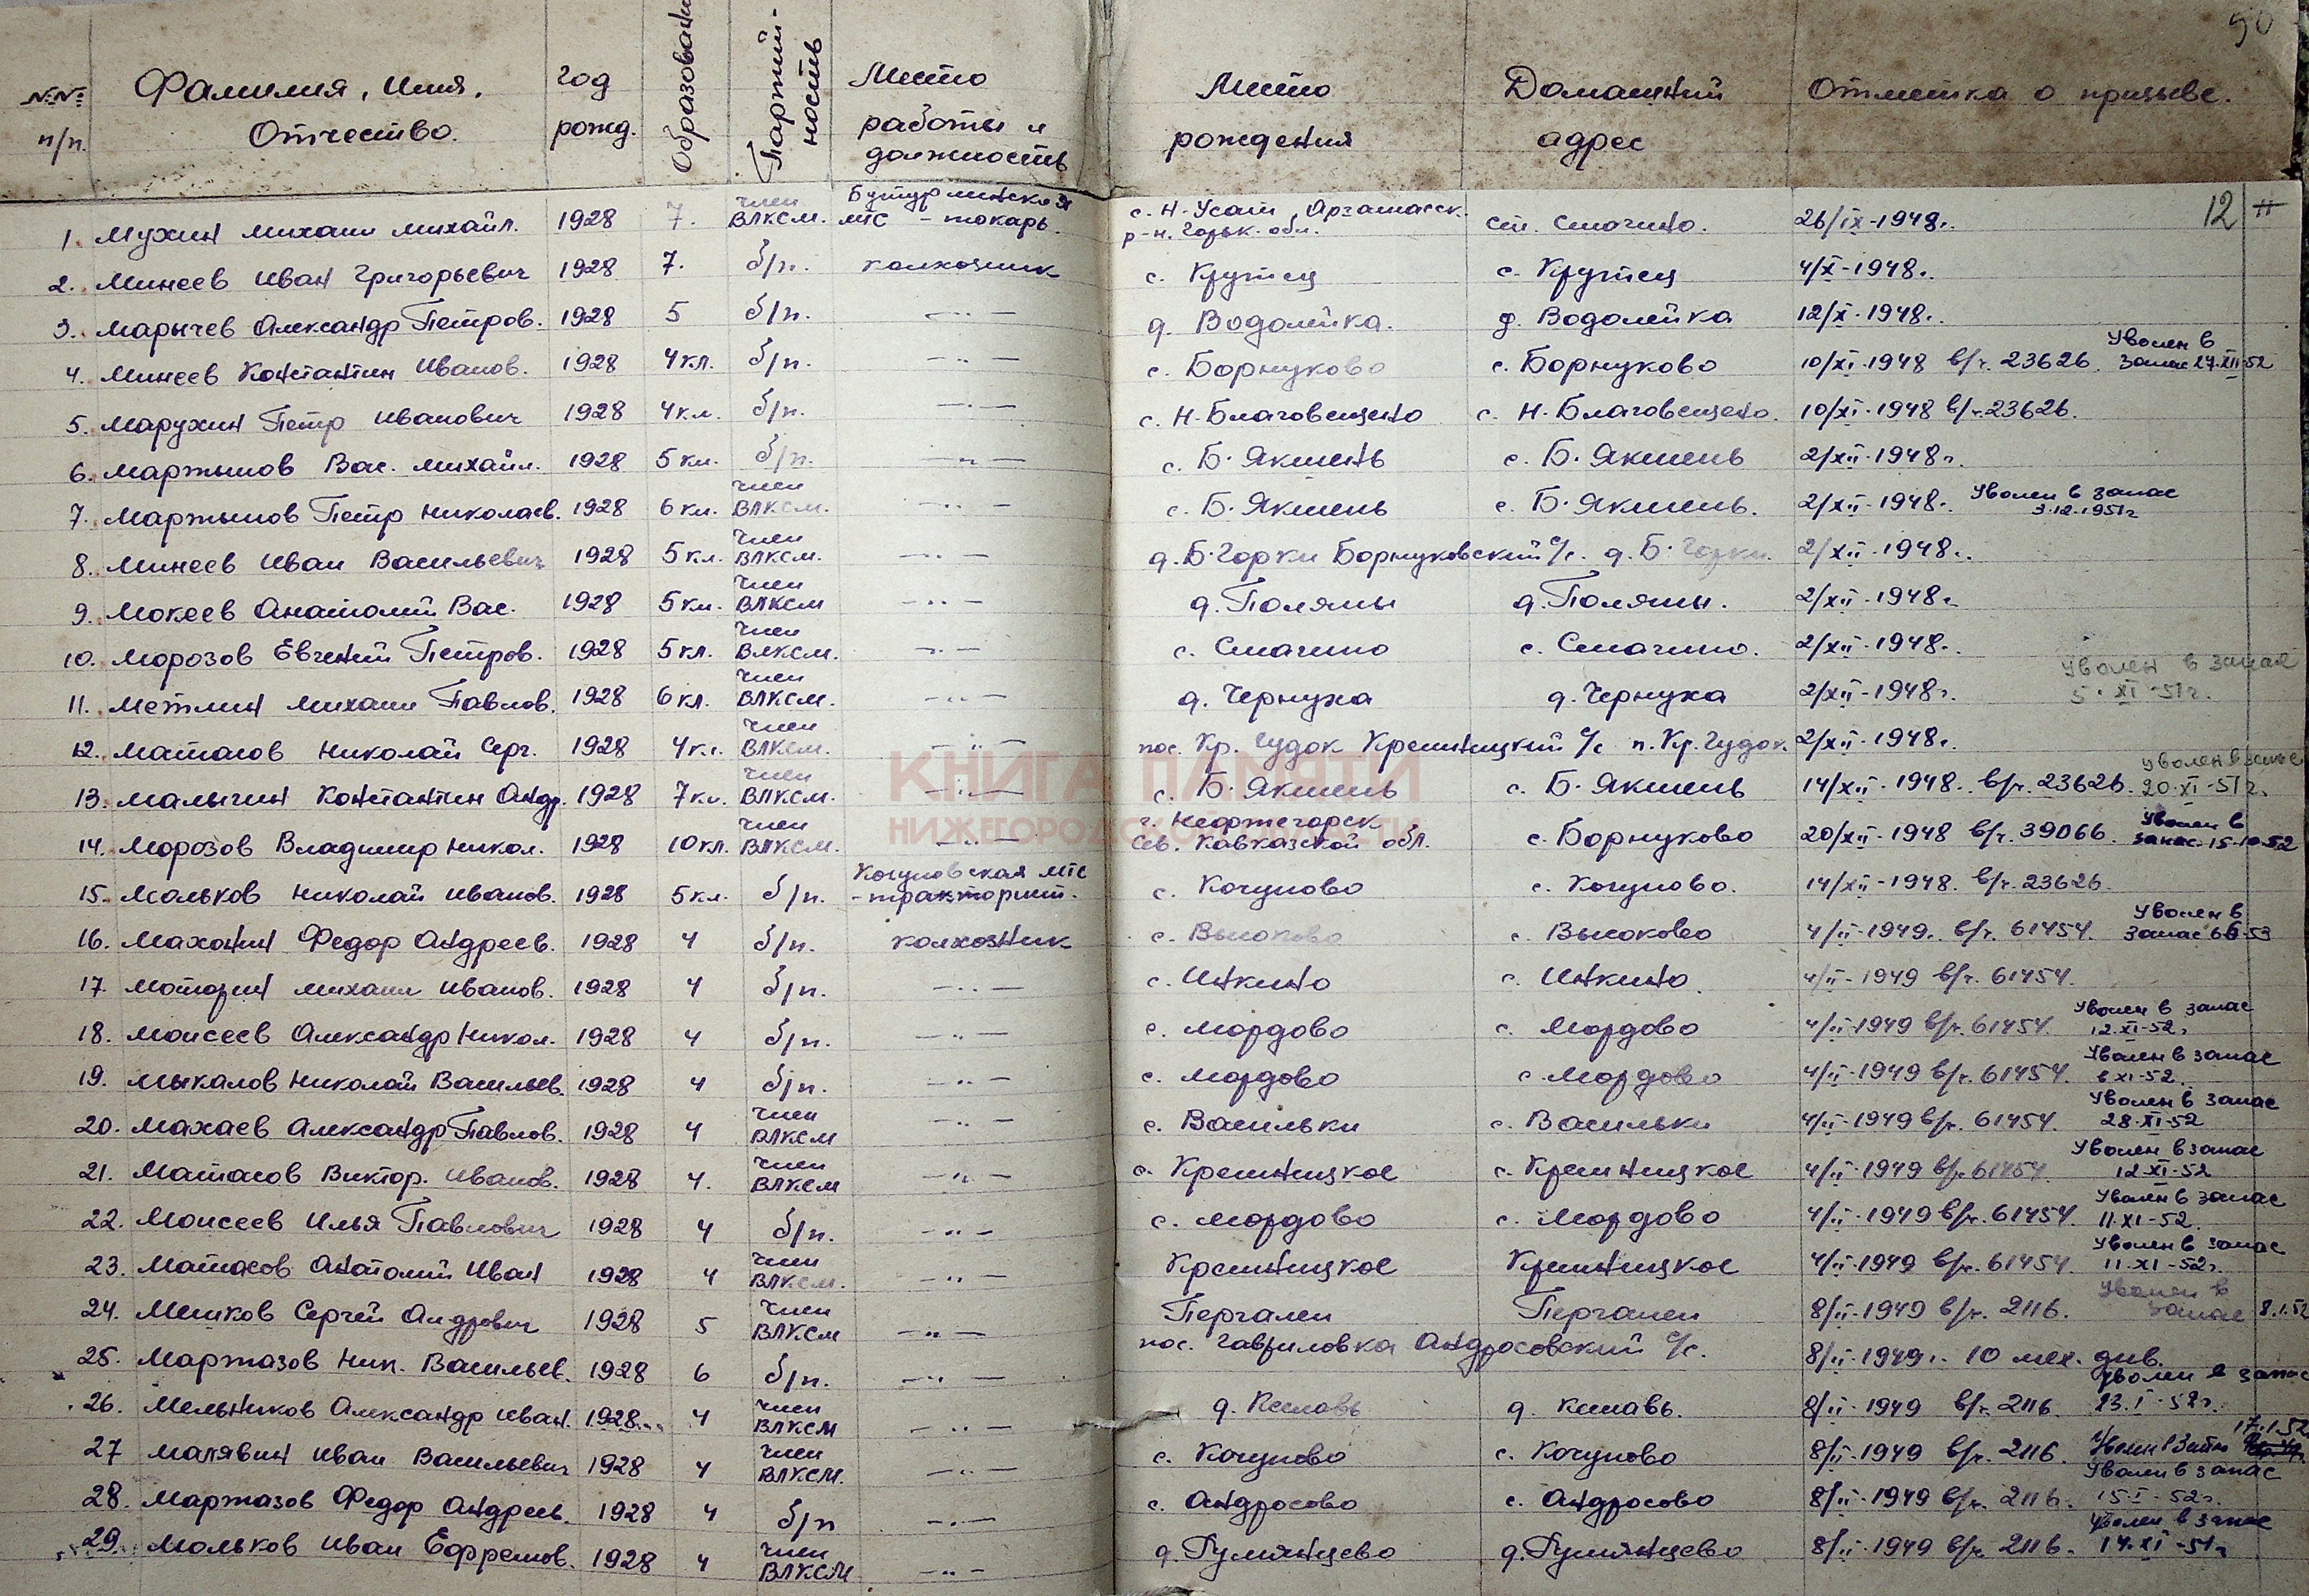 90
№№ п/п. Фамилия, Имя, Отчество. Год рожд. Образовани Партий-ность Место работы и должность Место рождения Домашний адрес Отметка о призыве.
12
1. Мухин Михаил Михайл. 1928 7. член ВЛКСМ. Бутурлинская МТС - токарь. с. Н-Усад, Арзамасск. р-н. Горьк. обл. ст. Смагино. 26/IX-1948г.
2. Минеев Иван Григорьевич 1928 7. б/п. колхозник с. Крутец с. Крутец 4/X-1948г.
3. Марычев Александр Петров. 1928 5 б/п. —"— д. Водолейка. д. Водолейка 12/X-1948г.
4. Минеев Константин Иванов. 1928 4 кл. б/п. —"— с. Борнуково с. Борнуково 10/XI-1948 в/ч. 23626. Уволен в запас 27.XII-52
5. Марухин Петр Иванович 1928 4 кл. б/п. —"— с. Н-Благовещено с. Н-Благовещено. 10/XI-1948 в/ч 23626.
6. Мартынов Вас. Михайл. 1928 5 кл. б/п. —"— с. Б. Якшень с. Б. Якшень 2/XII-1948г.
7. Мартынов Петр Николаев. 1928 6 кл. член ВЛКСМ. —"— с. Б. Якшень с. Б. Якшень. 2/XII-1948г. Уволен в запас 3.12.1951г
8. Минеев Иван Васильевич 1928 5 кл. член ВЛКСМ. —"— д. Б. Горки Борнуковский с/с. д. Б. Горки. 2/XII-1948г.
9. Мокеев Анатолий Вас. 1928 5 кл. член ВЛКСМ —"— д. Поляны д. Поляны. 2/XII-1948г.
10. Морозов Евгений Петров. 1928 5 кл. член ВЛКСМ. —"— с. Смагино с. Смагино. 2/XII-1948г.
11. Метлин Михаил Павлов. 1928 6 кл. член ВЛКСМ. —"— д. Чернуха д. Чернуха 2/XII-1948г. Уволен в запас 5.XI-51г.
12. Матасов Николай Серг. 1928 4 кл. член ВЛКСМ. —"— пос. Кр. Гудок Кремницкий с/с п. Кр. Гудок. 2/XII-1948г.
13. Малыгин Константин Андр. 1928 7 кл. член ВЛКСМ. —"— с. Б. Якшень с. Б. Якшень 14/XII-1948. в/ч. 23626. Уволен в запас 20.XI-51г.
14. Морозов Владимир Никол. 1928 10 кл. член ВЛКСМ. —"— г. Нефтегорск Сев. Кавказской обл. с. Борнуково 20/XII-1948 в/ч. 39066. Уволен в запас 15-10-52
15. Мольков Николай Иванов. 1928 5 кл. б/п. Кочуновская МТС - тракторист. с. Кочуново с. Кочуново. 14/XII-1948. в/ч. 23626.
16. Маханин Федор Андреев. 1928 4 б/п. колхозник с. Высоково с. Высоково 4/II-1949. в/ч. 61454. Уволен в запас 53
17. Моторин Михаил Иванов. 1928 4 б/п. —"— с. Инкино с. Инкино. 4/II-1949 в/ч. 61454.
18. Моисеев Александр Никол. 1928 4 б/п. —"— с. Мордово с. Мордово 4/II-1949 в/ч. 61454. Уволен в запас 12.XI-52г
19. Мыкалов Николай Васильев. 1928 4 б/п. —"— с. Мордово с. Мордово 4/II-1949 в/ч. 61454. Уволен в запас 6 XI-52.
20. Махаев Александр Павлов. 1928 4 член ВЛКСМ —"— с. Васильки с. Васильки 4/II-1949 в/ч. 61454. Уволен в запас 28.XI-52
21. Матасов Виктор. Иванов. 1928 4. член ВЛКСМ —"— с. Кремницкое с. Кремницкое 4/II-1949 в/ч 61454. Уволен в запас 12.XI-52
22. Моисеев Илья Павлович 1928 4 б/п. —"— с. Мордово с. Мордово 4/II-1949 в/ч. 61454. Уволен в запас 11.XI-52.
23. Матасов Анатолий Иван 1928 4 член ВЛКСМ. —"— Кремницкое Кремницкое 4/II-1949 в/ч. 61454. Уволен в запас 11.XI-52г.
24. Мешков Сергей Андреевич 1928 5 член ВЛКСМ —"— Пергалеи Пергалеи 8/II-1949 в/ч. 2116. Уволен в запас 8.1.52
25. Мартазов Ник. Васильев. 1928 6 б/п. —"— пос. Гавриловка Андросовский с/с. 8/II-1949г. 10 мех. див.
26. Мельников Александр Иван. 1928. 4 член ВЛКСМ —"— д. Киславь д. Киславь. 8/II-1949 в/ч. 2116. Уволен в запас 23.I-52г.
27 Малявин Иван Васильевич 1928 4 член ВЛКСМ. —"— с. Кочуново с. Кочуново 8/II-1949 в/ч. 2116. Уволен в запас 17.1.52
28. Мартазов Федор Андреев. 1928 4 б/п —"— с. Андросово с. Андросово 8/II-1949 в/ч. 2116. Уволен в запас 15-I-52г.
29. Мольков Иван Ефремов. 1928 4 член ВЛКСМ —"— д. Румянцево д. Румянцево 8/II-1949 в/ч. 2116. Уволен в запас 14.XI-51г
КНИГА ПАМЯТИ
НИЖЕГОРОДСКОЙ ОБЛАСТИ